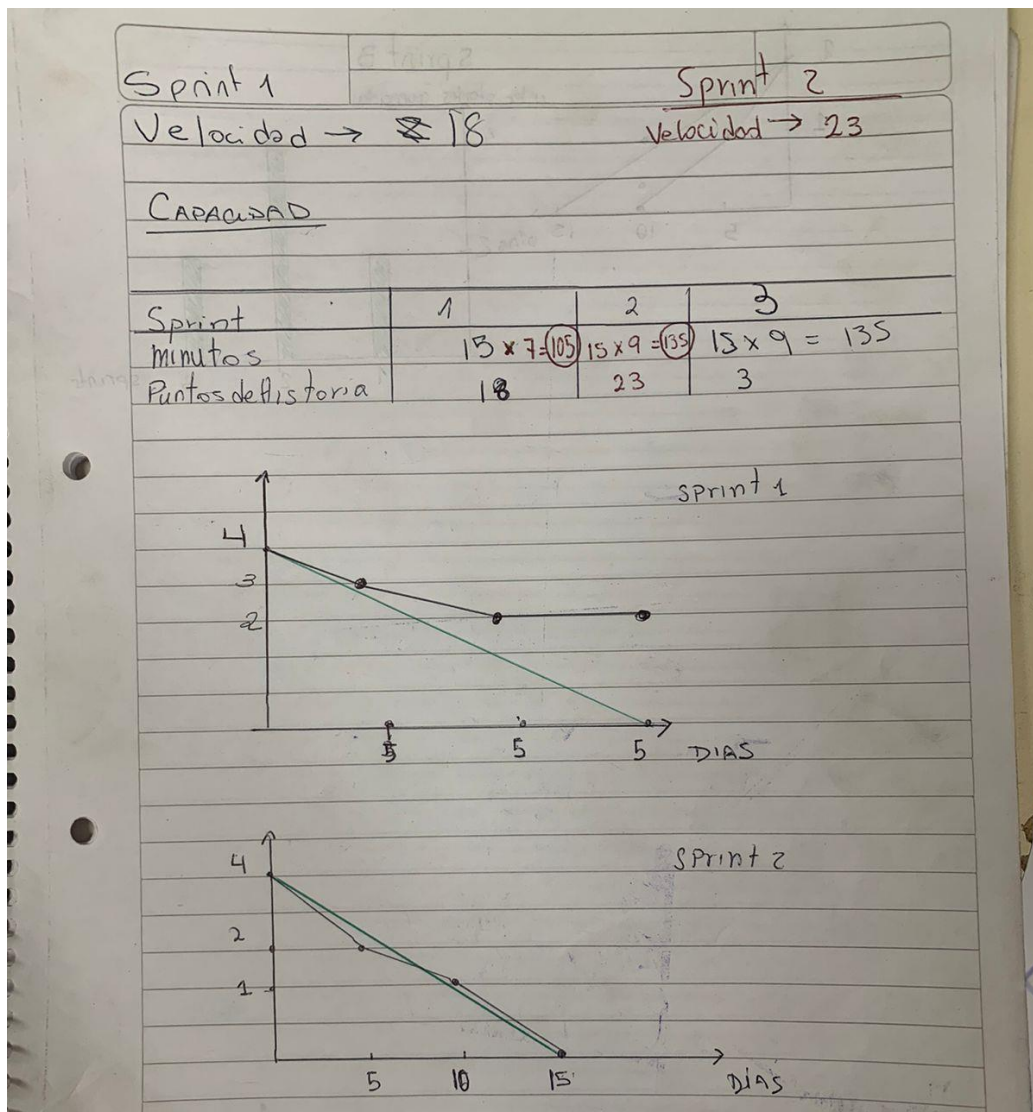 Sprint 1
Sprint 2
Velocidad → 18
Velocidad → 23
CAPACIDAD
Sprint 1 2 3
minutos 15 x 7=105 15 x 9 =135 15 x 9 = 135
Puntos de Historia 18 23 3
Sprint 1
4
3
2
5 5 5 DIAS
Sprint 2
4
2
1
5 10 15 DíAS